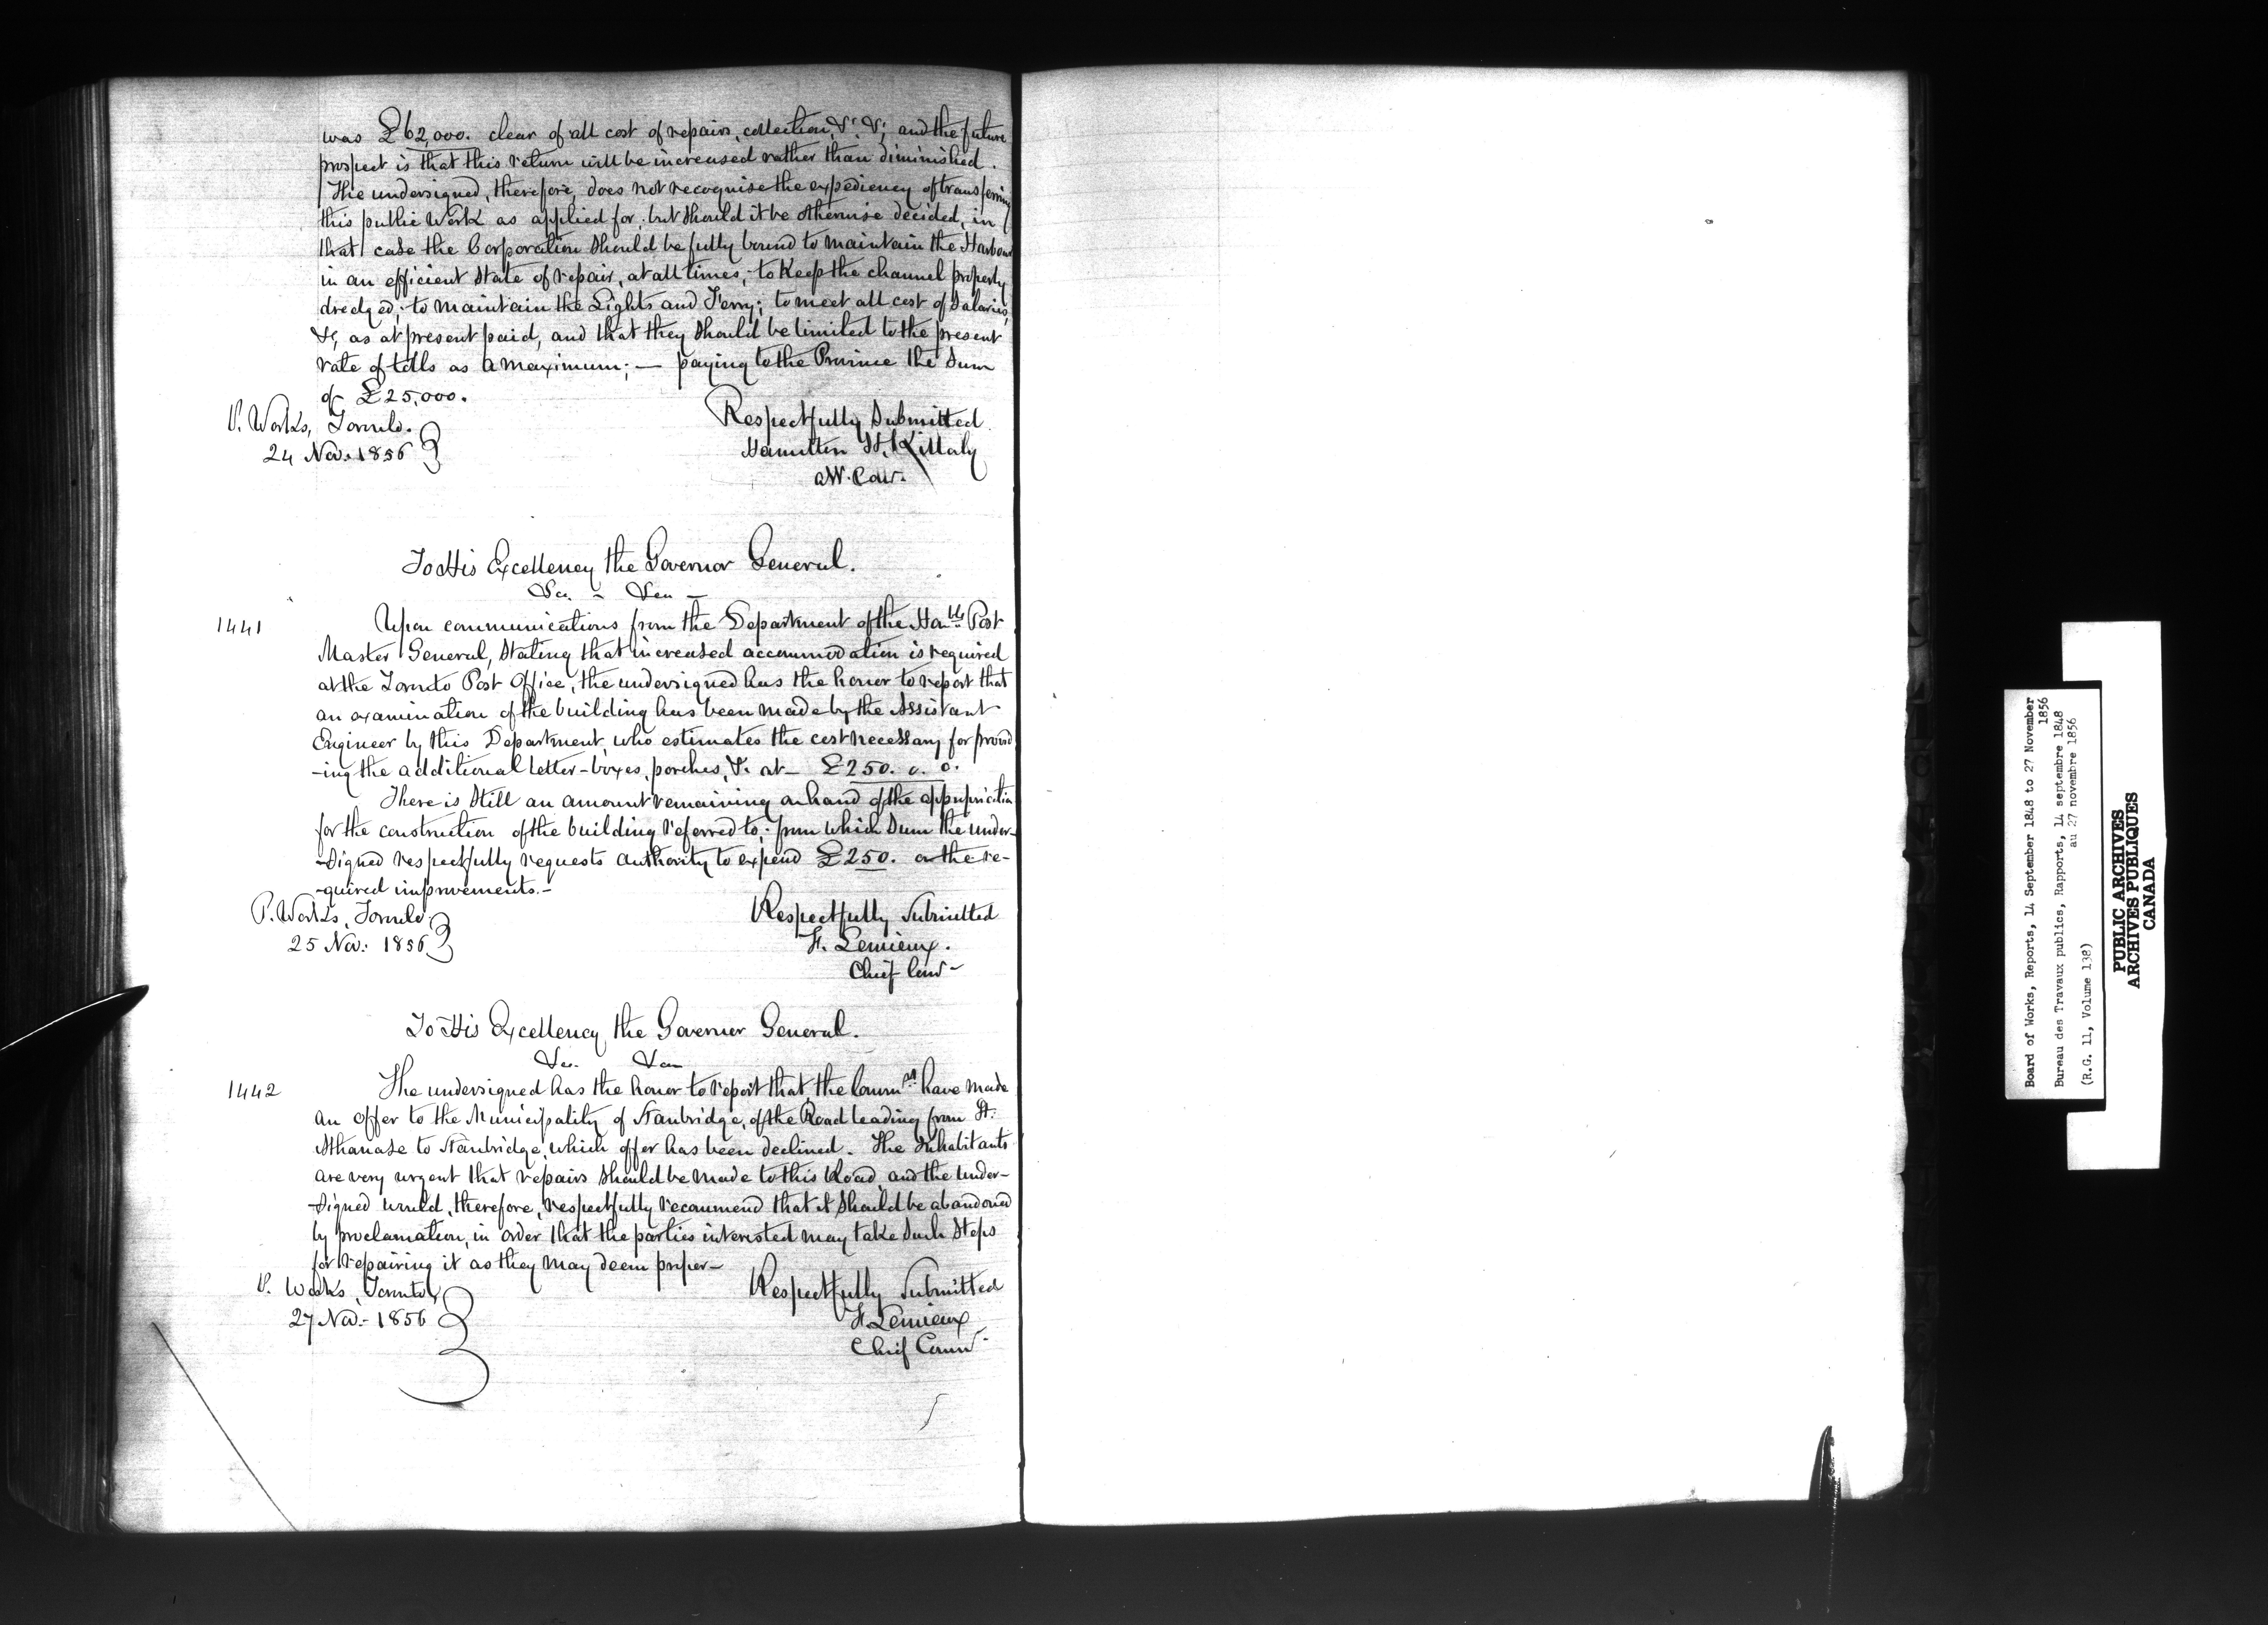 was £62,000. clear of all cost of repairs, collection, &c. &c; and the future
prospect is that this return will be increased rather than diminished.
The undersigned, therefore, does not recognise the expediency of transferring
this public Work as applied for; but should it be otherwise decided, in
that case the Corporation should be fully bound to maintain the Harbour
in an efficient state of repair, at all times; to keep the channel properly
dredged; to maintain the Lights and Ferry; to meet all cost of Salaries,
&c, as at present paid, and that they should be limited to the present
rate of tolls as a maximum; — paying to the Province the Sum
of £25,000.
P. Works, Toronto.
24 Nov: 1856
Respectfully Submitted
Hamilton H. Killaly
To His Excellency the Governor General.
&c. - &c. -
1441
Upon communications from the Department of the Honble Post
Master General, stating that increased accommodation is required
at the Toronto Post Office, the undersigned has the honor to report that
an examination of the building has been made by the Assistant
Engineer by this Department, who estimates the cost necessary for provid
-ing the additional letter-boxes, porches, &c. at — £250. 0. 0.
There is still an amount remaining on hand of the appropriation
for the construction of the building referred to; from which Sum the under-
-signed respectfully requests authority to expend £250. on the re-
-quired improvements.-
P. Works, Toronto
25 Nov: 1856
Respectfully Submitted
F. Lemieux.
Chief Com -
To His Excellency the Governor General.
&c. &c.
1442
The undersigned has the honor to report that the Commrs have made
an offer to the Municipality of Stanbridge, of the Road leading from St.
Athanase to Stanbridge, which offer has been declined. The Inhabitants
are very urgent that repairs should be made to this Road, and the under-
-signed would, therefore, respectfully recommend that it should be abandoned
by proclamation, in order that the parties interested may take such steps
for repairing it as they may deem proper -
P. Works, Toronto,
27 Nov:- 1856
Respectfully Submitted
F. Lemieux
Chief Comr
Board of Works, Reports, 14 September 1848 to 27 November
1856
Bureau des Travaux publics, Rapports, 14 septembre 1848
au 27 novembre 1856
(R.G. 11, Volume 138)
PUBLIC ARCHIVES
ARCHIVES PUBLIQUES
CANADA